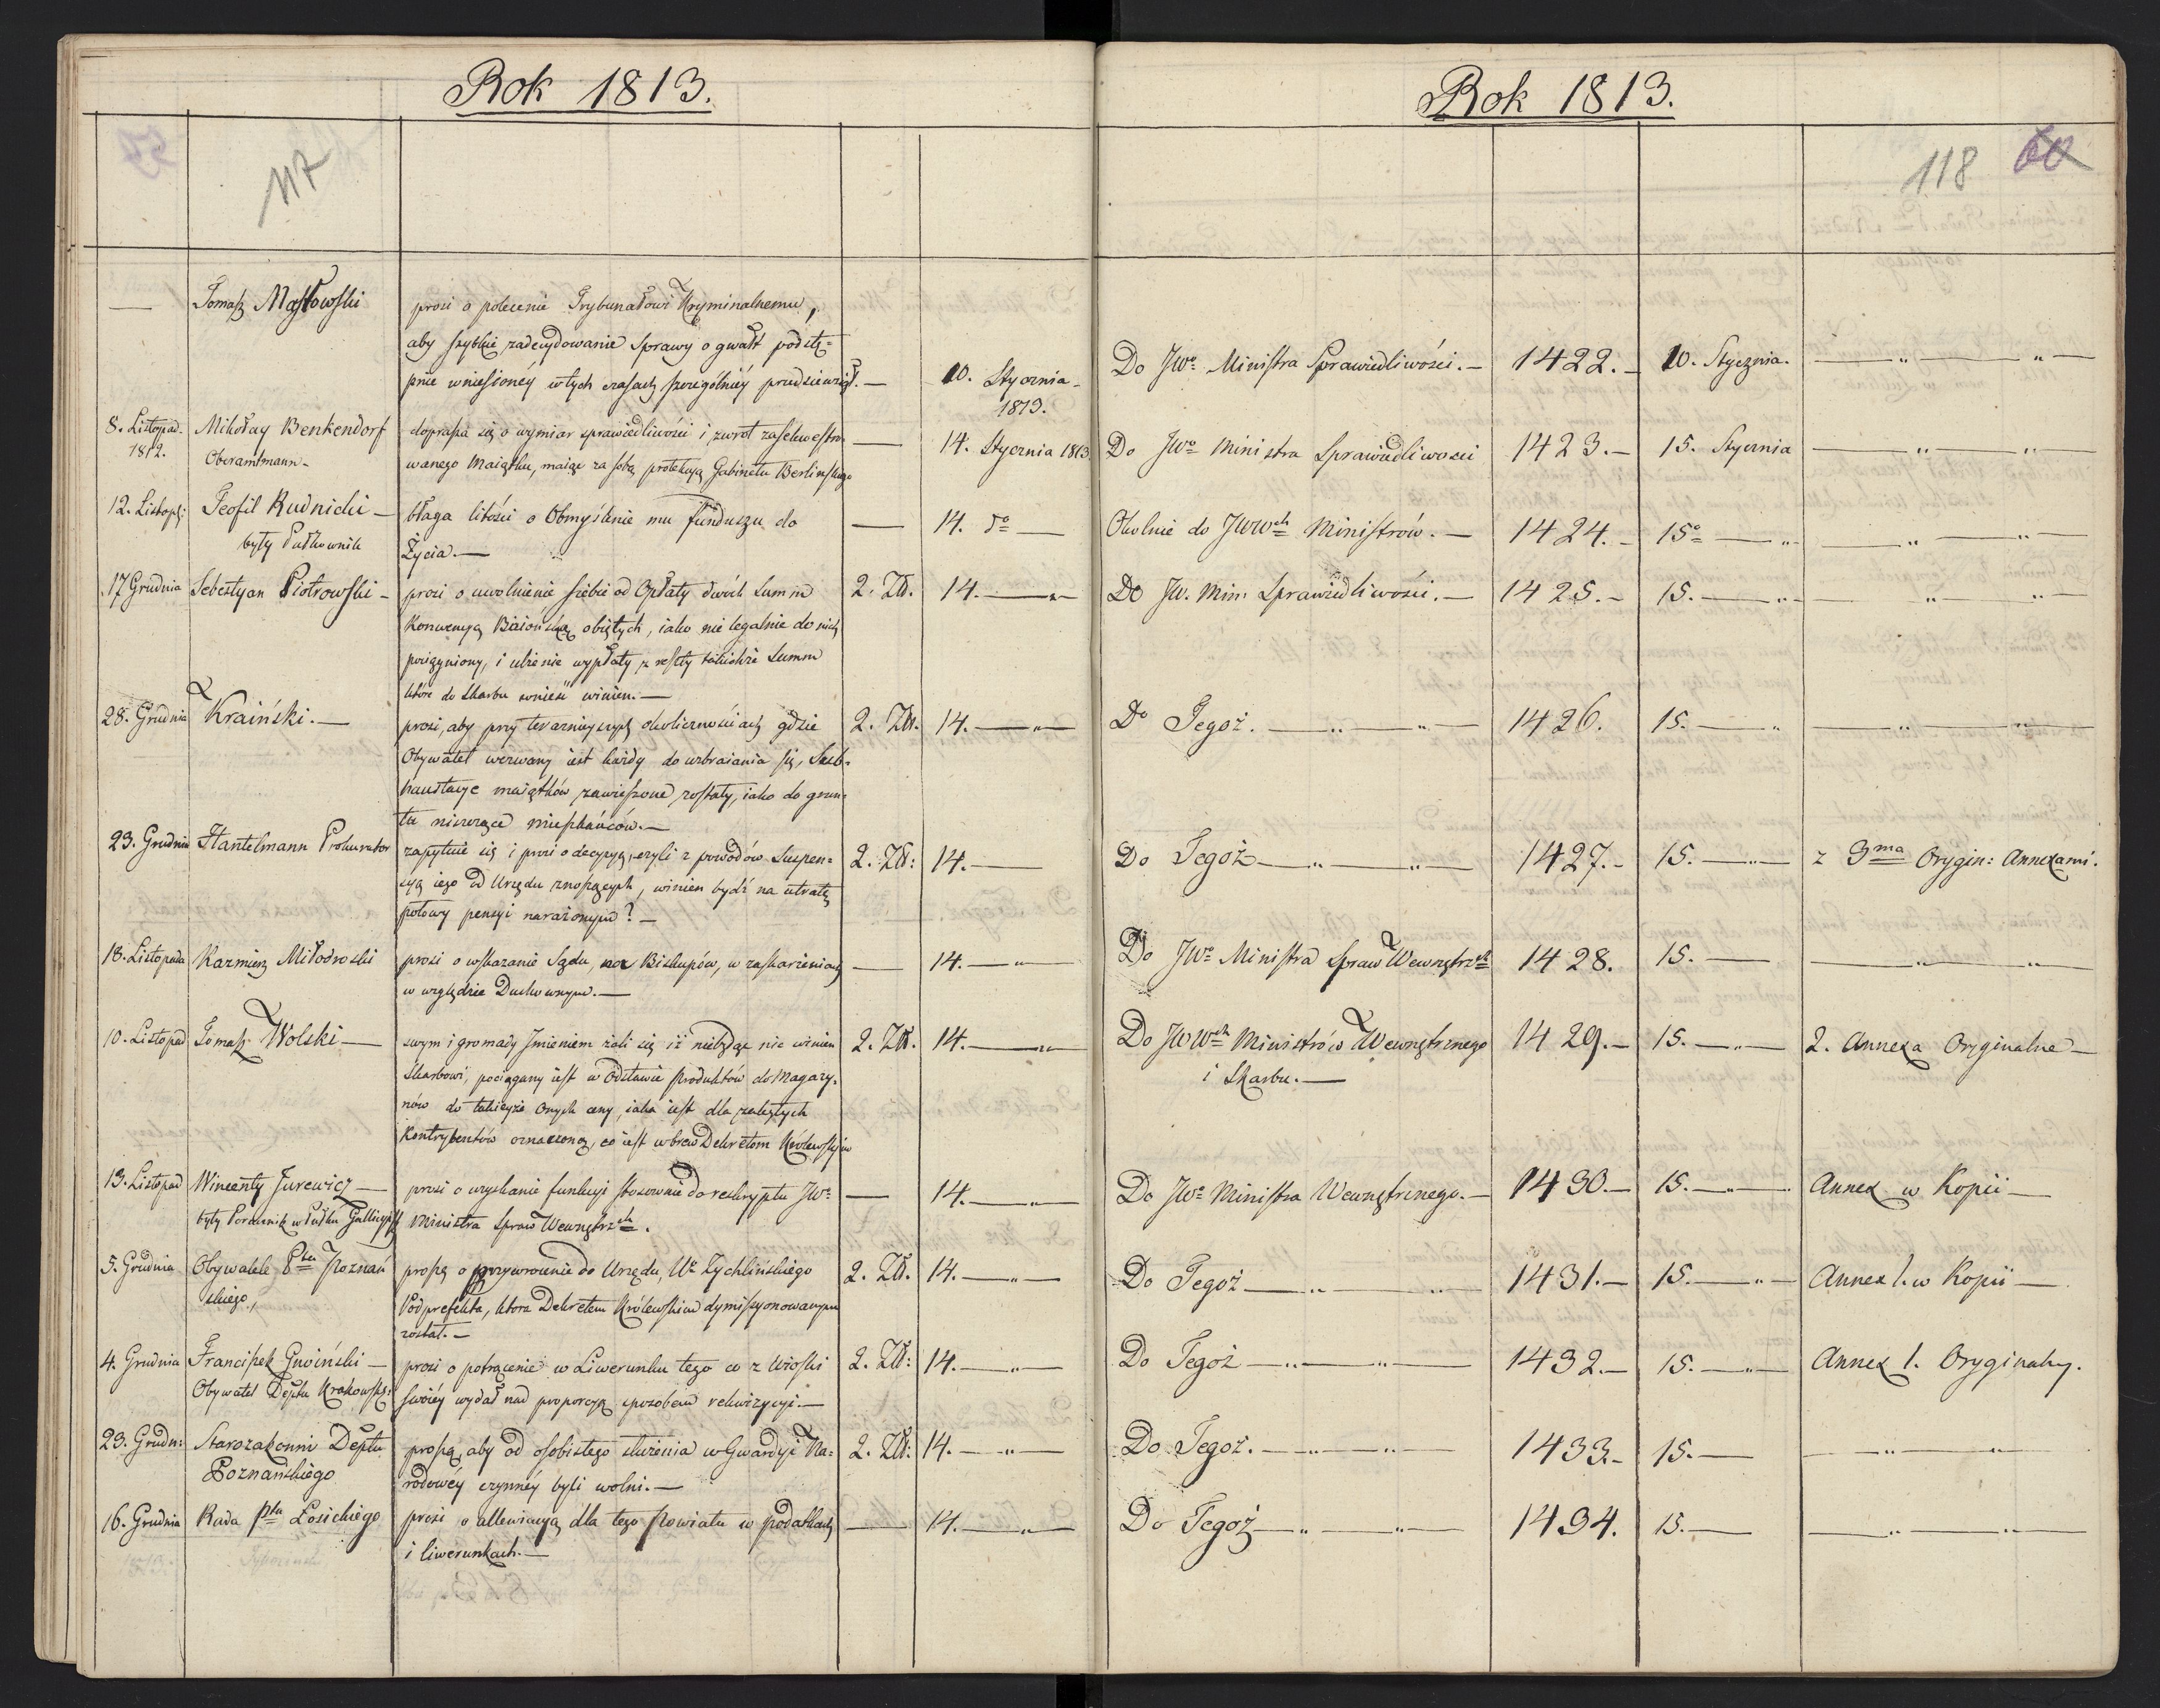 Rok 1813.
Rok 1813.
117
118 60
— Tomasz Masłowski
prosi o polecenie Trybunałowi Kryminalnemu,
aby szybkie zadecydowanie Sprawy o gwałt podstę=
pnie wniesionéy w tych czasach szczególniéy przedsiewziął. — 10. Stycznia 1813. Do JWo Ministra Sprawiedliwości. — 1422. — 10. Stycznia. — „ — „ —
8. Listopad. 1812. Mikołay Benkendorf
Oberamtmann -
doprasza się o wymiar sprawiedliwości i zwrot zasekwestro= — 14. Stycznia 1813 Do JWo Ministra Sprawiedliwości 1423. — 15. Stycznia — „ — „ —
wanego Maiątku, maiąc za sobą protekcyą Gabinetu Berlińskiego
12. Listop: Teofil Rudnicki —
były Pułkownik
błaga litości o Obmyślenie mu funduszu do — 14. do — Okolnie do JWWch Ministrów. — 1424. — 15o — „ — „ — „ —
Życia. —
17 Grudnia Sebestyan Piotrowski - prosi o uwolnienie siebie od Opłaty dwóch Summ 2. Zł. 14. — „ — Do JW. Min: Sprawiedliwości. — 1425. — 15. — „ — „ — „ —
Konwencyą Baiońską obiętych, iako nie legalnie do nich
pociągniony, i ulżenie wypłaty z reszty takichże Summ
które do Skarbu wnieść winien. —
28. Grudnia Kraiński. — prosi, aby przy teraznieyszych okolicznościach gdzie 2. Zł. 14. — „ — Do Tegoż. — „ — „ — 1426. 15. — „ — „ — „ —
Obywatel wezwany iest każdy do uzbraiania się, Sub=
haustacye maiątków zawieszone zostały, iako do grun=
tu niszczące mieszkańców. —
23. Grudnia Hantelmann Prokurator zapytuie się i prosi o decyzyą, czyli z powodów Suspen= 2. Zł: 14. — Do Tegoż — „ — „ — 1427. — 15. — „ — z 3ma Orygin: Annexami.
syą iego od Urzędu znoszących, winien bydź na utratę
połowy pensyi narażonym? —
18. Listopada Kazmierz Miłodroski prosi o wskazanie Sądu, na Biskupów, w zaskarżeniach — 14. — „ — Do JWo Ministra Spraw Wewnętrzch 1428. 15. — — „ — „ —
w względzie Duchownym. —
10. Listopad Tomasz Wolski — swym i gromady Jmieniem żali się iż niebędąc nic winien 2. Zł. 14. — „ — Do JWWch Ministrów Wewnętrznego 1429. — 15. — „ — 2. Annexa Oryginalne —
i Skarbu. —
Skarbowi, pociągany iest w Odstawie produktów do Magazy=
nów do takieyże onych ceny, iaka iest dla zaległych
Kontrybentów oznaczona, co iest wbrew Dekretom Królewskim
13. Listopad Wincenty Jurewicz —
były Porucznik w Pułku Gallicysk
prosi o uzyskanie funkcyi stosownie do reskryptu JWo — 14. — „ — Do JWo Ministra Wewnętrznego. — 1430. — 15. — „ — Annex w Kopii —
Ministra Spraw Wewnętrzch.
5. Grudnia Obywatele Ptu Poznań
skiego,
proszą o przywrócenie do Urzędu, Wo Zychlińskiego 2. Zł. 14. — „ — Do Tegoż — „ — „ — 1431. — 15. — „ — Annex 1. w Kopii —
Podprefekta, która Dekretem Królewskim dymissyonowanym
został. —
4. Grudnia Franciszek Gnoiński —
Obywatel Deptu Krakowsk:
prosi o potrącenie w Liwerunku tego co z Wioski 2. Zł: 14. — „ — Do Tegoż — „ — „ — 1432. — 15. — „ — Annex 1. Oryginalny.
swoiéy wydał nad proporcyą sposobem rekwizycyi. —
23. Grudn: Starozakonni Deptu
Poznańskiego
proszą, aby od osobistego służenia w Gwardyi Na= 2. Zł: 14. — „ — Do Tegoż. — „ — „ — 1433. — 15. — — „ — „ —
rodowéy czynnéy byli wolni. —
16. Grudnia Rada Ptu Łosickiego prosi o allewiacyą dla tego Powiatu w podatkach — 14. — „ — Do Tegoż — „ — „ — 1434. 15. — — „ — „ —
i liwerunkach. —